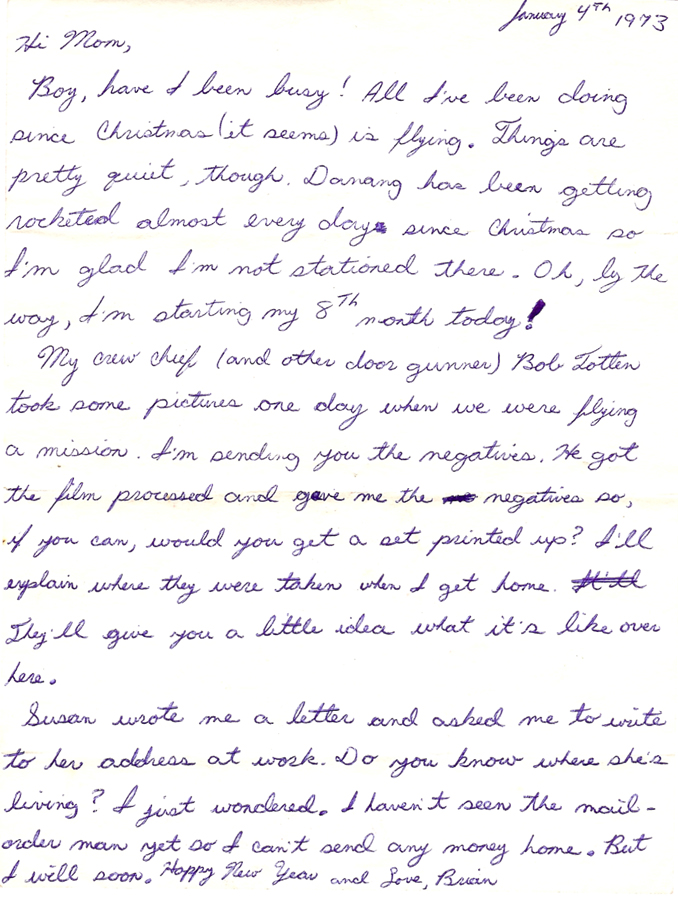 January 4th 1973
Hi Mom,
Boy, have I been busy! All I've been doing
since Christmas (it seems) is flying. Things are
pretty quiet, though. Danang has been getting
rocketed almost every day since Christmas so
I'm glad I'm not stationed there. Oh, by the
way, I'm starting my 8TH month today!
My crew chief (and other door gunner) Bob Totten
took some pictures one day when we were flying
a mission. I'm sending you the negatives. He got
the film processed and gave me the negatives so,
if you can, would you get a set printed up? I'll
explain where they were taken when I get home. It'll
They'll give you a little idea what it's like over
here.
Susan wrote me a letter and asked me to write
to her address at work. Do you know where she's
living? I just wondered. I haven't seen the mail-
order man yet so I can't send any money home. But
I will soon. Happy New Year and Love, Brian